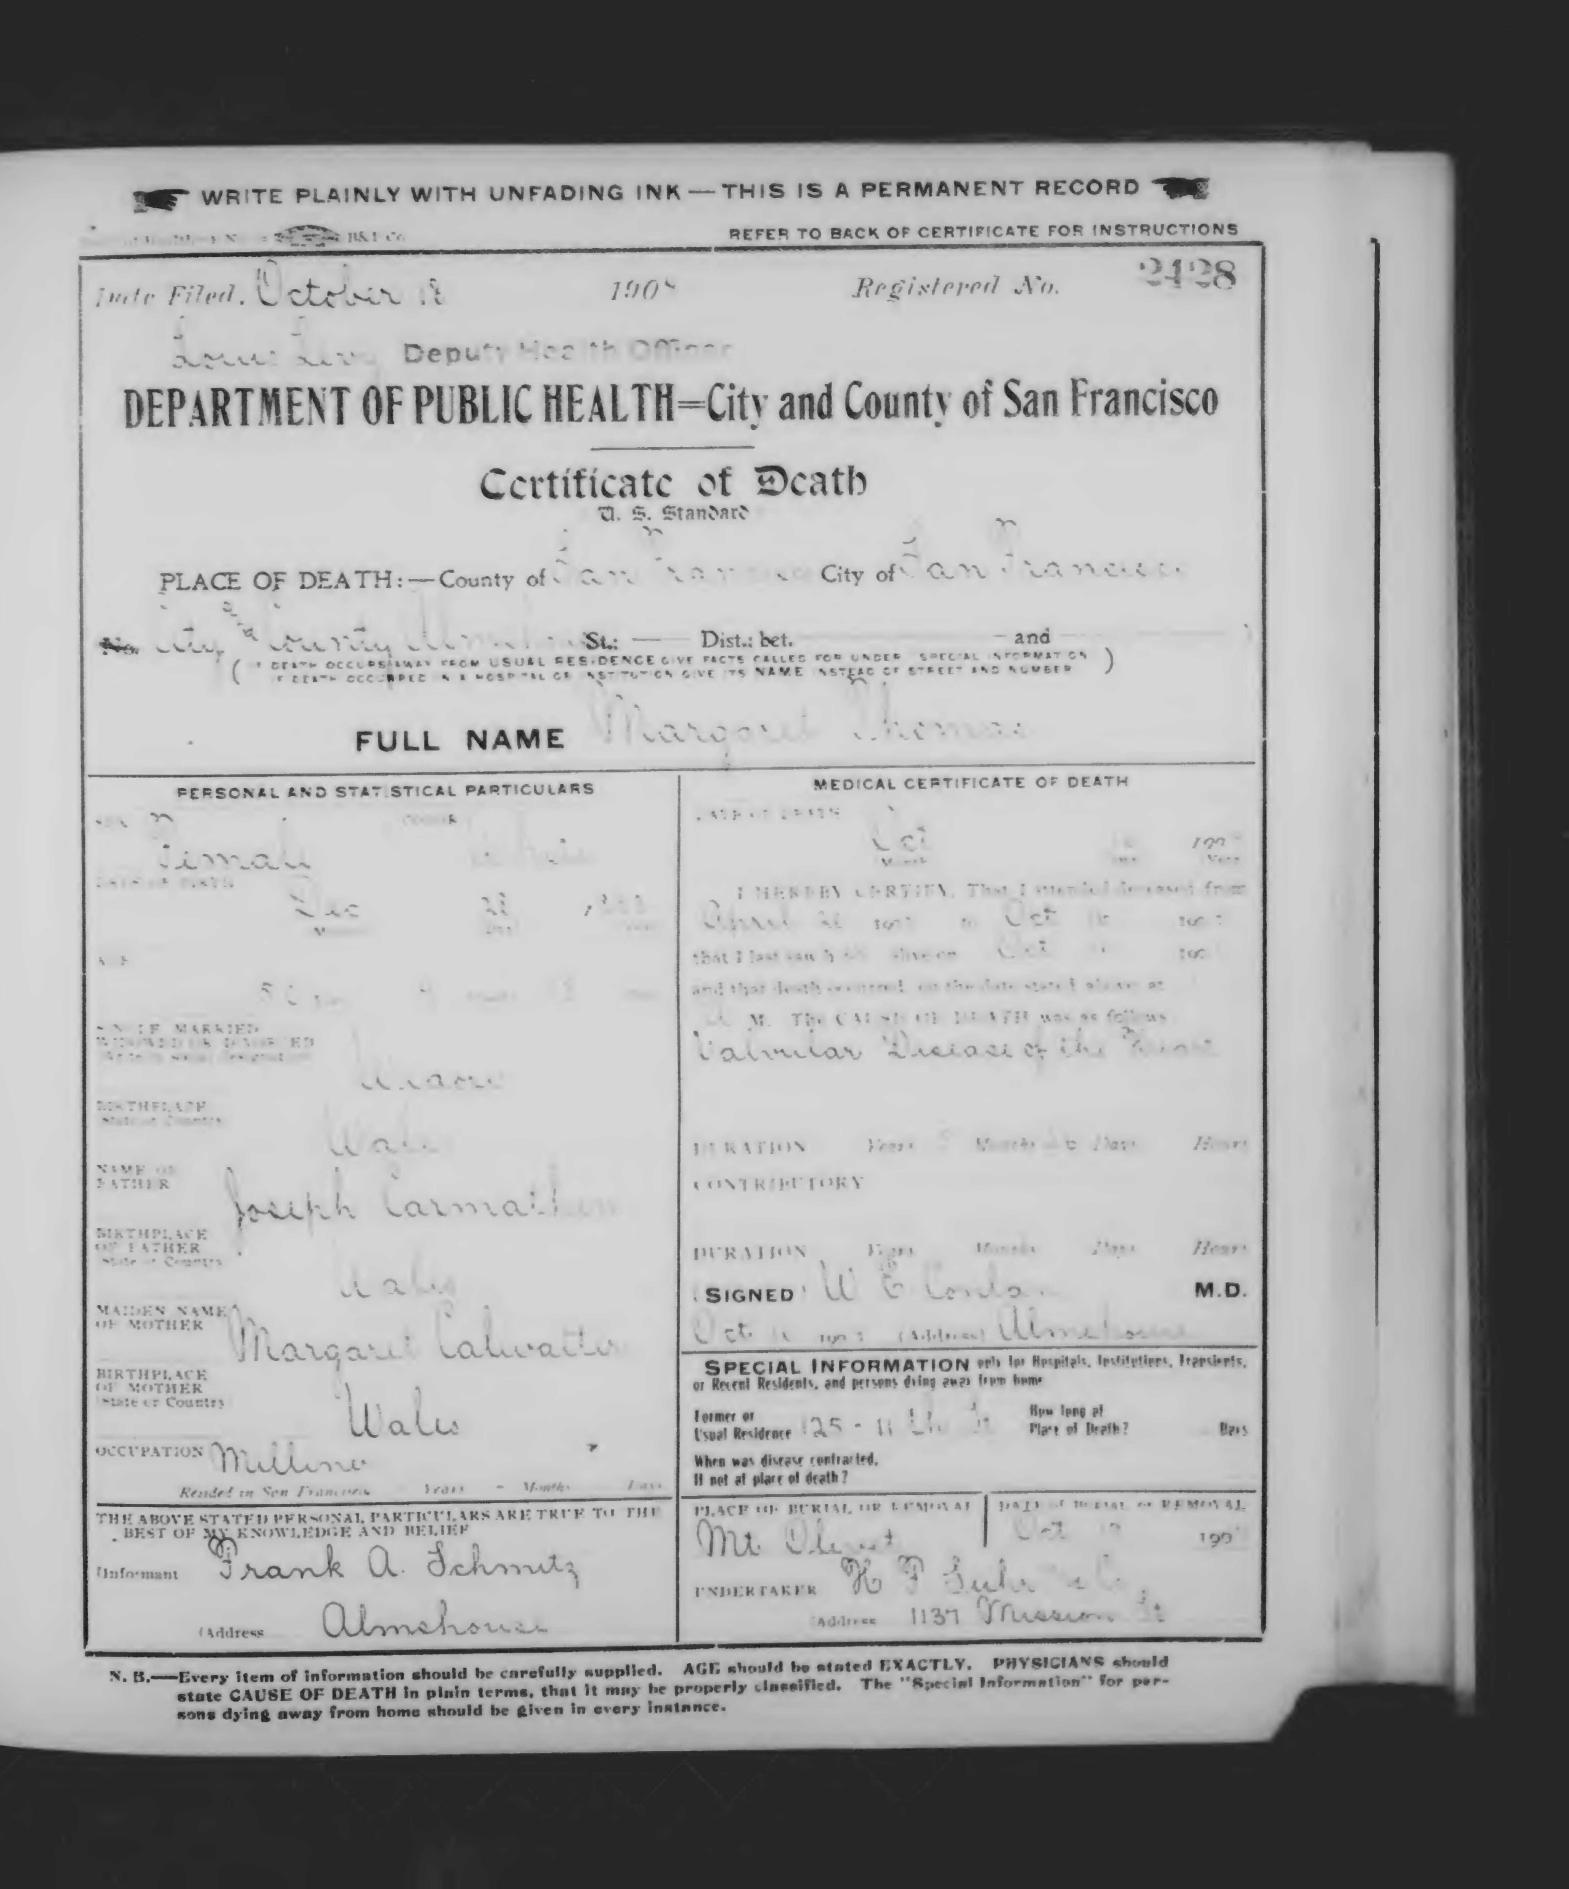 WRITE PLAINLY WITH UNFADING INK — THIS IS A PERMANENT RECORD
REFER TO BACK OF CERTIFICATE FOR INSTRUCTIONS
Date Filed, October 18 190 Registered No. 2428
Deputy Health Officer
DEPARTMENT OF PUBLIC HEALTH=City and County of San Francisco
Certificate of Death
U. S. Standard
PLACE OF DEATH:—County of San Francisco City of San Francisco
No. City and County St.; — Dist.; bet. — and
( IF DEATH OCCURS AWAY FROM USUAL RESIDENCE GIVE FACTS CALLED FOR UNDER "SPECIAL INFORMATION" )
( IF DEATH OCCURRED IN A HOSPITAL OR INSTITUTION GIVE ITS NAME INSTEAD OF STREET AND NUMBER )
FULL NAME Margaret Thomas
PERSONAL AND STATISTICAL PARTICULARS
SEX COLOR
Female White
DATE OF BIRTH
Dec
AGE
SINGLE, MARRIED
WIDOWED OR DIVORCED
Widow
BIRTHPLACE
State or Country
Wales
NAME OF
FATHER
Joseph
BIRTHPLACE
OF FATHER
State or Country
Wales
MAIDEN NAME
OF MOTHER
Margaret
BIRTHPLACE
OF MOTHER
State or Country
Wales
OCCUPATION Milliner
Resided in San Francisco Years - Months Days
THE ABOVE STATED PERSONAL PARTICULARS ARE TRUE TO THE
BEST OF MY KNOWLEDGE AND BELIEF
(Informant Frank A. Schmitz
(Address Almshouse
MEDICAL CERTIFICATE OF DEATH
DATE OF DEATH
Oct 190
Month Day Year
I HEREBY CERTIFY, That I attended deceased from
April 190 to Oct 190
that I last saw h alive on Oct 190
and that death occurred, on the date stated above, at
M. The CAUSE OF DEATH was as follows
Valvular Disease of the Heart
DURATION Years Months Days Hours
CONTRIBUTORY
DURATION Years Months Days Hours
(SIGNED) W C M.D.
Oct 190 (Address) Almshouse
SPECIAL INFORMATION only for Hospitals, Institutions, Transients,
or Recent Residents, and persons dying away from home
Former or
Usual Residence 125 - 11th St
How long at
Place of Death? Days
When was disease contracted,
If not at place of death?
PLACE OF BURIAL OR REMOVAL
Mt Olivet
DATE of BURIAL or REMOVAL
Oct 190
UNDERTAKER H F Suhr & Co,
(Address 1137 Mission St
N. B.—Every item of information should be carefully supplied. AGE should be stated EXACTLY. PHYSICIANS should
state CAUSE OF DEATH in plain terms, that it may be properly classified. The "Special Information" for per-
sons dying away from home should be given in every instance.